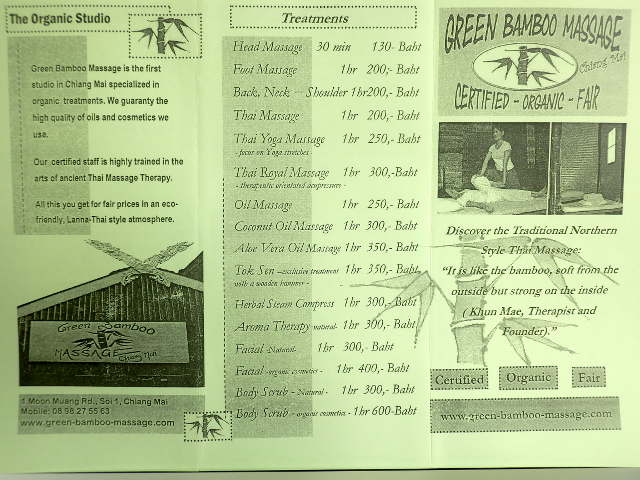 The Organic Studio
Green Bamboo Massage is the first
studio in Chiang Mai specialized in
organic treatments. We guaranty the
high quality of oils and cosmetics we
use.
Our certified staff is highly trained in the
arts of ancient Thai Massage Therapy.
All this you get for fair prices in an eco-
friendly, Lanna-Thai style atmosphere.
Green Bamboo
MASSAGE Chiang Mai
1 Moon Muang Rd., Soi 1, Chiang Mai
Mobile: 08 98 27 55 63
www.green-bamboo-massage.com
Treatments
Head Massage 30 min 130- Baht
Foot Massage 1hr 200,- Baht
Back, Neck - Shoulder 1hr200,- Baht
Thai Massage 1hr 200,- Baht
Thai Yoga Massage 1hr 250,- Baht
- focus on Yoga stretches -
Thai Royal Massage 1hr 300,-Baht
- therapeutic orientated acupressure -
Oil Massage 1hr 250,- Baht
Coconut Oil Massage 1hr 300,- Baht
Aloe Vera Oil Massage 1hr 350,- Baht
Tok Sen - exclusive treatment 1hr 350,- Baht
with a wooden hammer -
Herbal Steam Compress 1hr 300,- Baht
Aroma Therapy -natural- 1hr 300,- Baht
Facial -Natural- 1hr 300,- Baht
Facial -organic cosmetics - 1hr 400,- Baht
Body Scrub - Natural - 1hr 300,- Baht
Body Scrub - organic cosmetics - 1hr 600-Baht
GREEN BAMBOO MASSAGE
Chiang Mai
CERTIFIED - ORGANIC - FAIR
Discover the Traditional Northern
Style Thai Massage:
"It is like the bamboo, soft from the
outside but strong on the inside
( Khun Mae, Therapist and
Founder)."
Certified Organic Fair
www.green-bamboo-massage.com